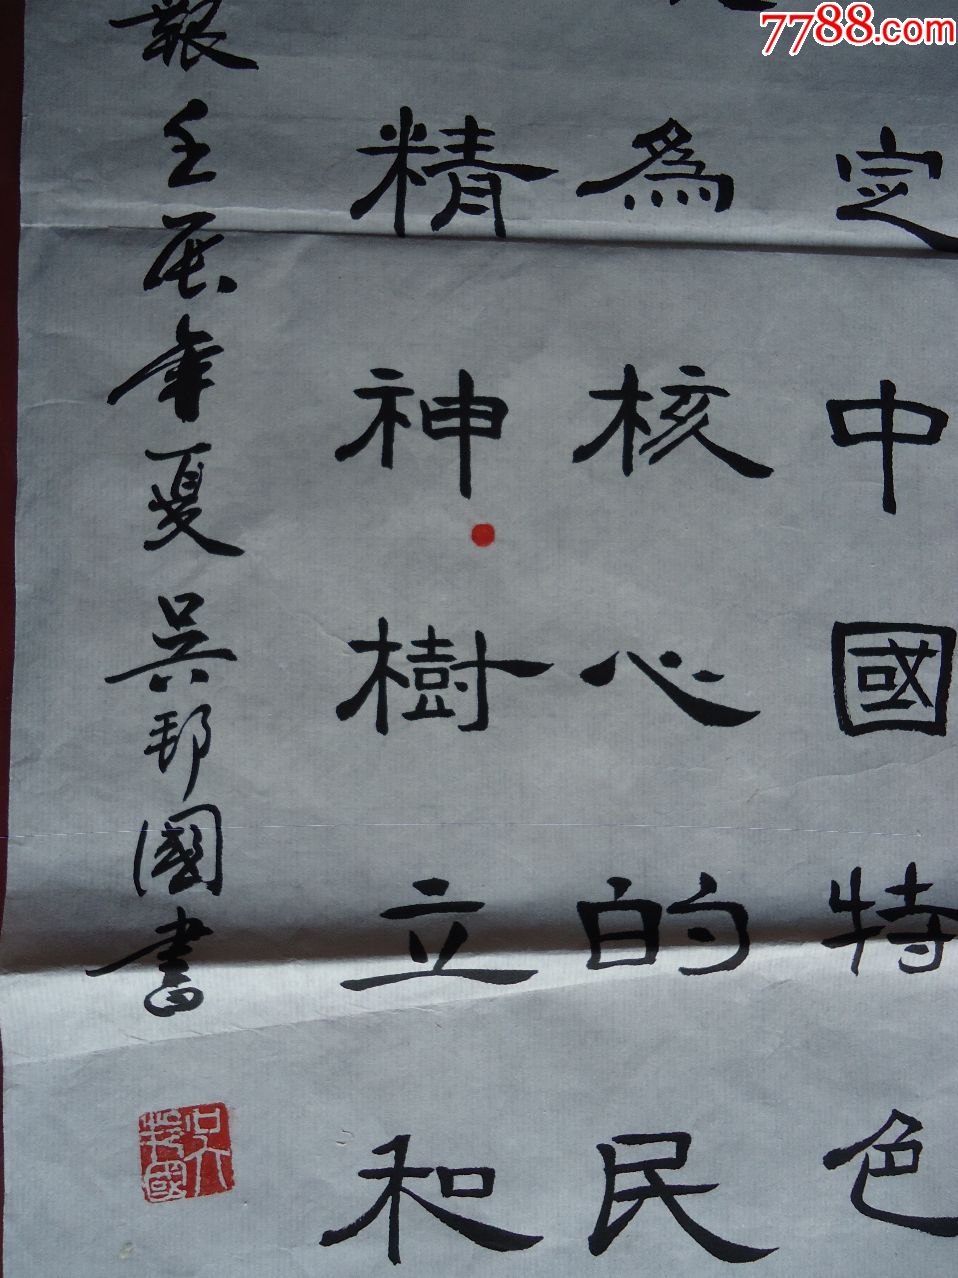 7788.com
定中國特色
為核心的民
精神樹立和
艱壬辰年夏吳邦國書
吳邦國